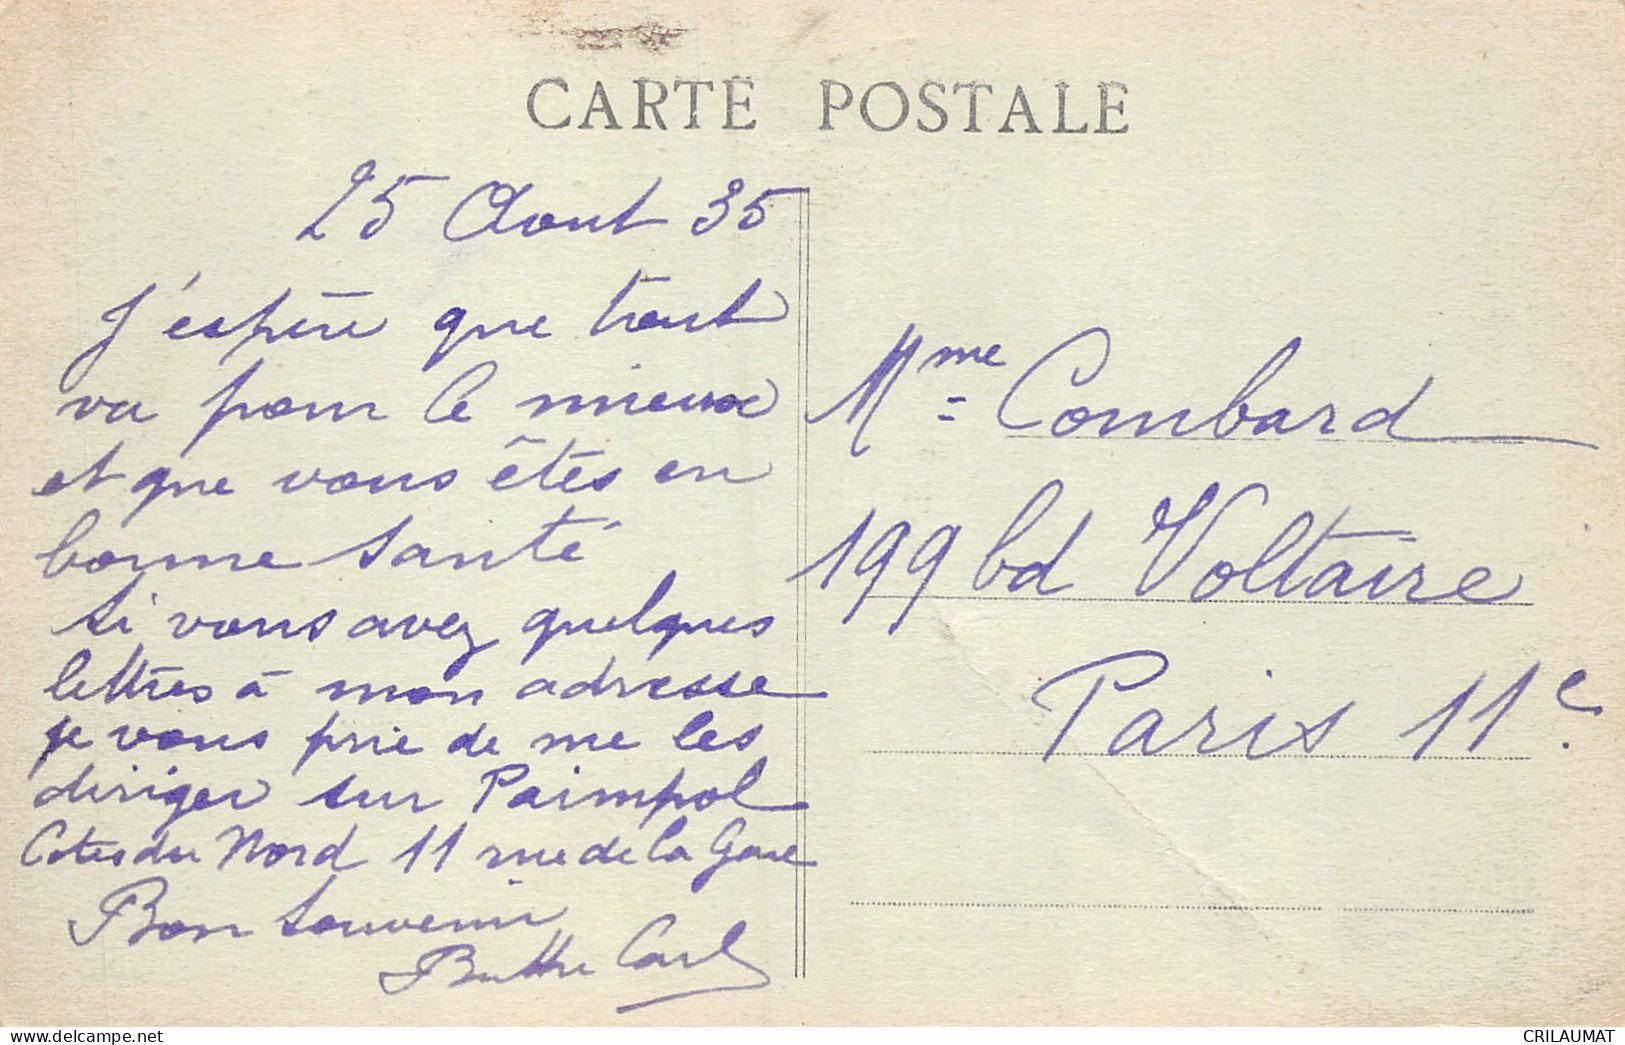 CARTE POSTALE
25 Aout 35
J'espère que tout
va pour le mieux
et que vous êtes en
bonne santé
si vous avez quelques
lettres à mon adresse
je vous prie de me les
diriger sur Paimpol
Cotes du Nord 11 rue de la Gare
Bon souvenir
Mme Combard
199 bd Voltaire
Paris 11e.
www.delcampe.net
CRILAUMAT